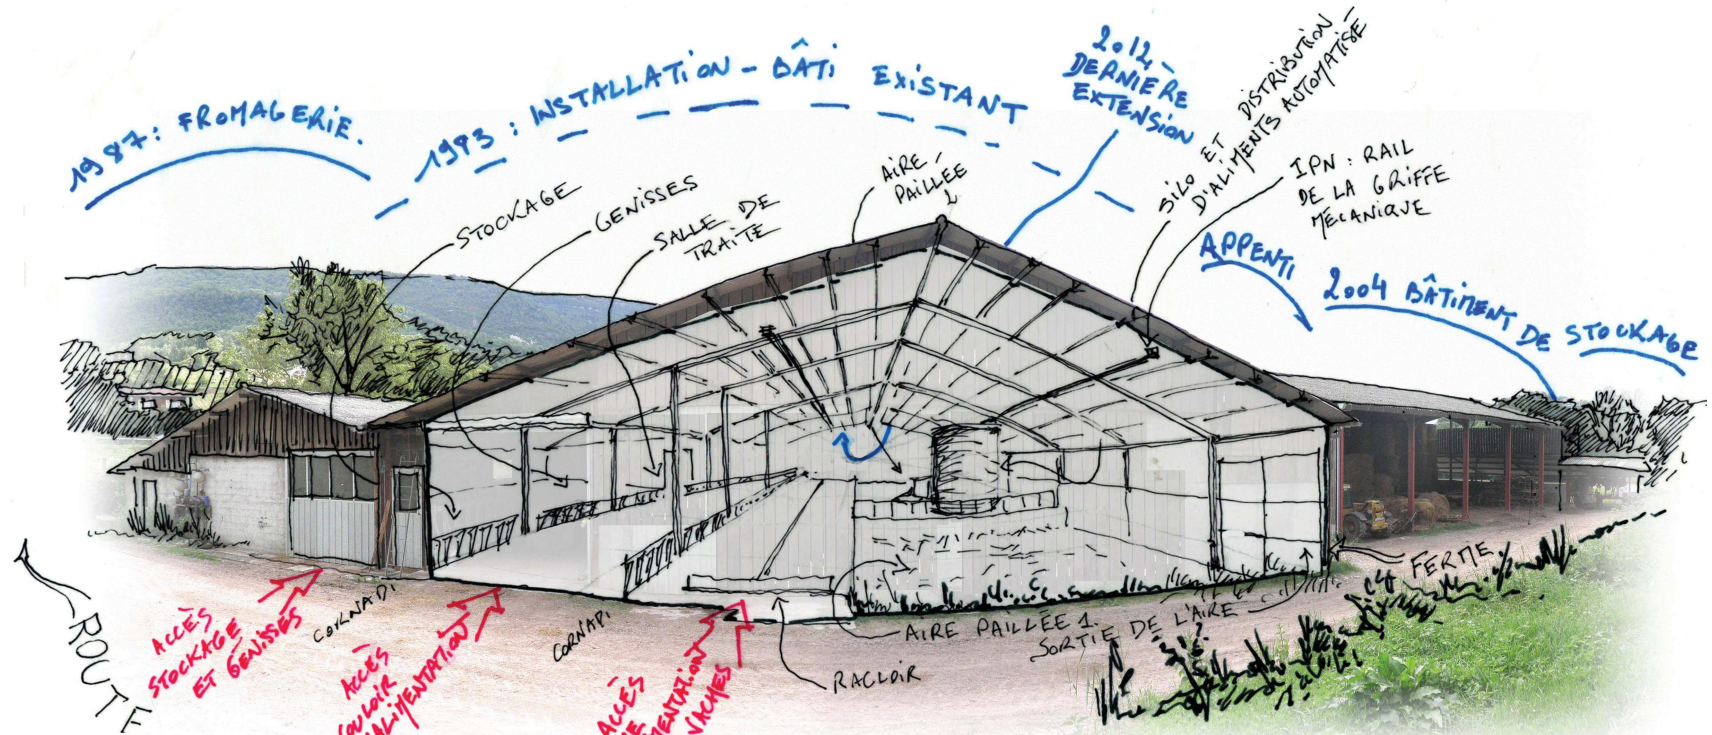 1987: FROMAGERIE.
1993: INSTALLATION - BÂTI EXISTANT
2012 -
DERNIÈRE
EXTENSION
SILO ET DISTRIBUTION -
D'ALIMENTS AUTOMATISÉ
IPN : RAIL
DE LA GRIFFE
MÉCANIQUE
AIRE -
PAILLÉE
STOCKAGE
GENISSES
SALLE DE
TRAITE
APPENTI
2004 BÂTIMENT DE STOCKAGE
ROUTE
ACCÈS
STOCKAGE
ET GÉNISSES
CORNADI
ACCÈS
COULOIR
ALIMENTATION
CORNADI
ACCÈS
VACHES
RACLOIR
AIRE PAILLÉE 1.
SORTIE DE L'AIRE
FERME